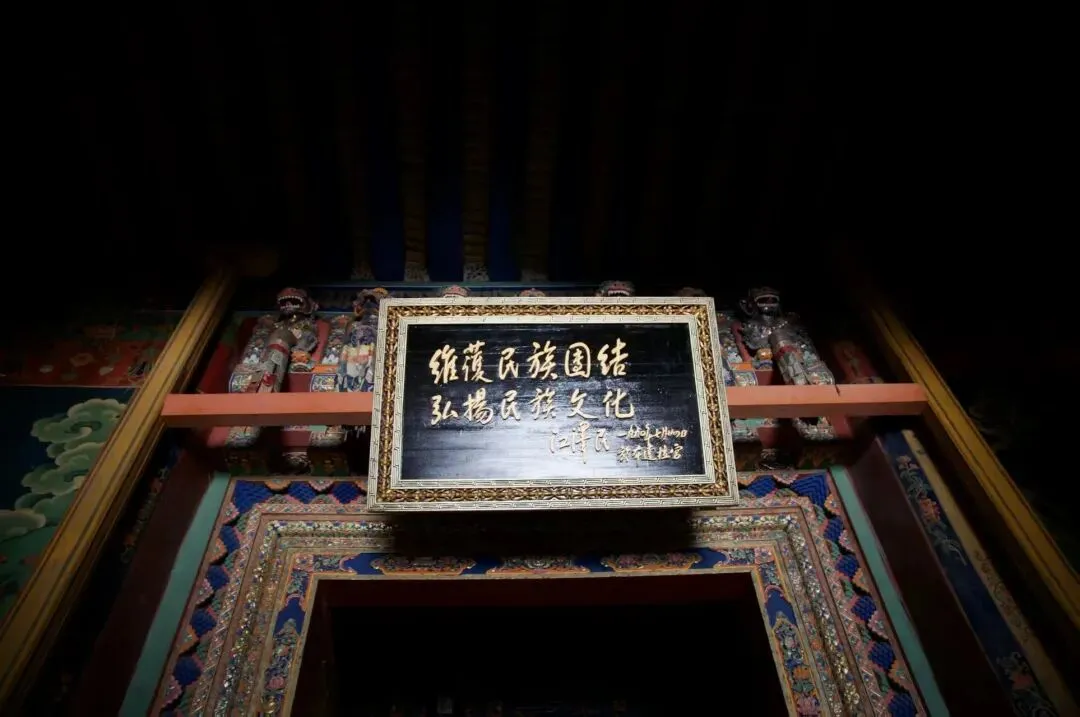 维護民族团结
弘揚民族文化
江泽民 一九九〇年七月廿四日
於布達拉宫